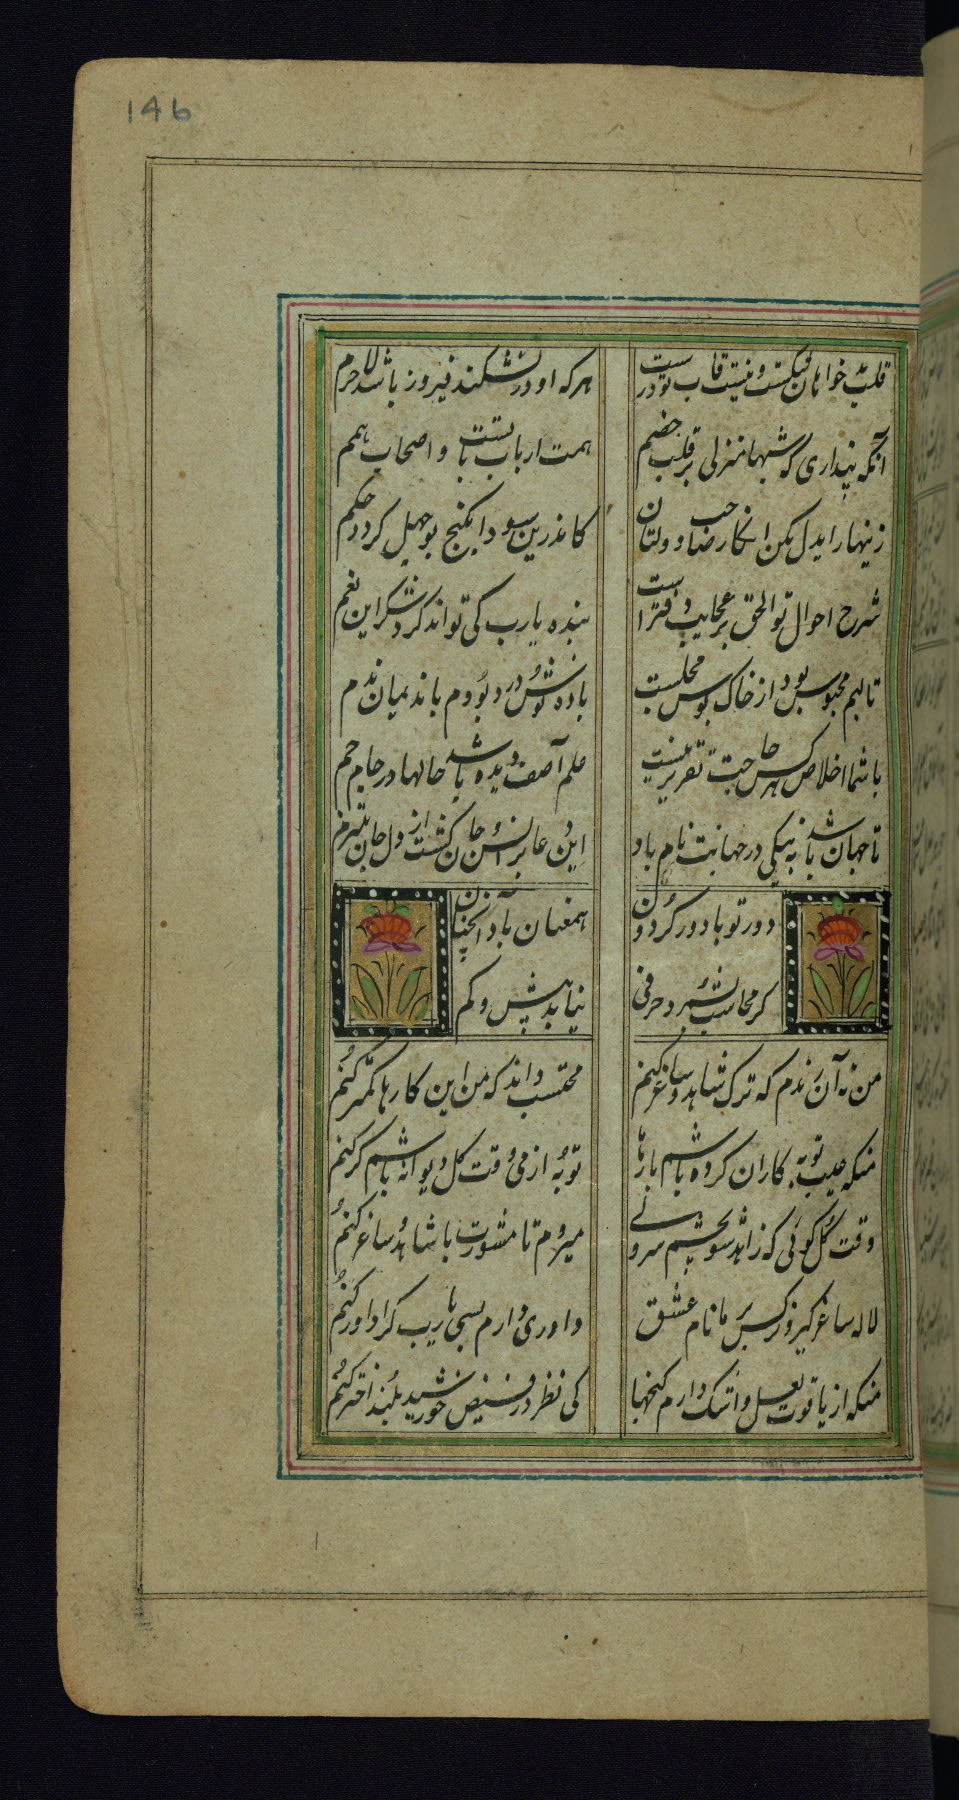 146
قلب بدخواهان شکست و نیست قلب تو درست
هرکه او در نشکند فیروز باشد لاجرم
آنکه پنداری که شبها منزلی بر قلب خصم
همت ارباب با تست و اصحاب همم
زینهار ایدل مکن انکار صاحب دولتان
کاندرین سودا بکنج بوجهل کردد حکم
شرح احوال تو الحق بر عجایب دفتر است
بنده یارب کی تواند کرد شکر این نعم
تا لبم محبوس بود از خاک بوس مجلست
باده نوش درد بودم با ندیمان ندم
با شما اخلاص هر کس حاجت تقریر نیست
علم آصف دیده باشد حالها در جام جم
تا جهان باشد به نیکی در جهانت نام باد
این دعا بر انس و جان کشت از دل و جان ملتزم
دور تو باد دور کردون
همعنان باد آنچنان
کر محاسب نشمرد حرفی
نیابد بیش و کم
من نه آن رندم که ترک شاهد و ساغر کنم
محتسب داند که من این کارها کمتر کنم
منکه عیب توبه کاران کرده باشم بارها
توبه از می وقت کل دیوانه باشم کر کنم
وقت کل کوئی که زاهد شو بچشم سر ولی
میروم تا مشورت با شاهد و ساغر کنم
لاله ساغر کیر و نرکس بر ما نام عشق
داوری دارم بسی یارب کرا داور کنم
منکه از یاقوت لعل و اشک دارم کنجها
کی نظر در فیض خورشید بلند اختر کنم